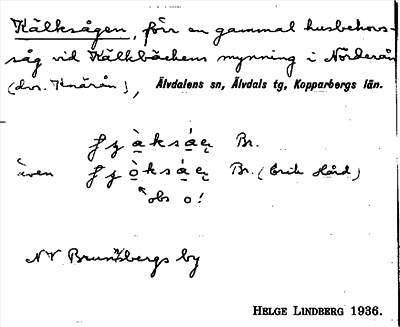 Kälksågen, förr en gammal husbehovs-
såg vid Kälkbäckens mynning i Nörderån
(dvs. Knärån), Älvdalens sn, Älvdals tg, Kopparbergs län.
Br.
även Br. (Erik Hård)
obs o!
NV Brunnsbergs by
HELGE LINDBERG 1936.